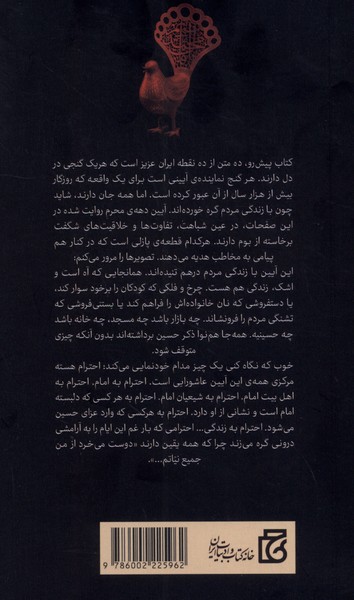 کتاب پیش‌رو، ده متن از ده نقطه ایران عزیز است که هریک کنجی در
دل دارند. هر کنج نماینده‌ی آیینی است برای یک واقعه که روزگار
بیش از هزار سال از آن عبور کرده است. اما همه جان دارند، شاید
چون با زندگی مردم گره خورده‌اند. آیین دهه‌ی محرم روایت شده در
این صفحات، در عین شباهت، تفاوت‌ها و خلاقیت‌های شگفت
برخاسته از بوم دارند. هرکدام قطعه‌ی پازلی است که در کنار هم
پیامی به مخاطب هدیه می‌دهند. تصویرها را مرور می‌کنم:
این آیین با زندگی مردم درهم تنیده‌اند. همانجایی که آه است و
اشک، زندگی هم هست. چرخ و فلکی که کودکان را برخود سوار کند،
یا دستفروشی که نان خانواده‌اش را فراهم کند یا بستنی‌فروشی که
تشنگی مردم را فرونشاند. چه بازار باشد چه مسجد، چه خانه باشد
چه حسینیه. همه‌جا هم‌نوا ذکر حسین برداشته‌اند بدون آنکه چیزی
متوقف شود.
خوب که نگاه کنی یک چیز مدام خودنمایی می‌کند: احترام هسته
مرکزی همه‌ی این آیین عاشورایی است. احترام به امام. احترام به
اهل بیت امام. احترام به شیعیان امام. احترام به هر کسی که دلبسته
امام است و نشانی از او دارد. احترام به هرکسی که وارد عزای حسین
می‌شود. احترام به زندگی... احترامی که بار غم این ایام را به آرامشی
درونی گره می‌زند چرا که همه یقین دارند «دوست می‌خرد از من
جمیع نیاتم...».
خانه کتاب و ادبیات ایران
9 786002 225962